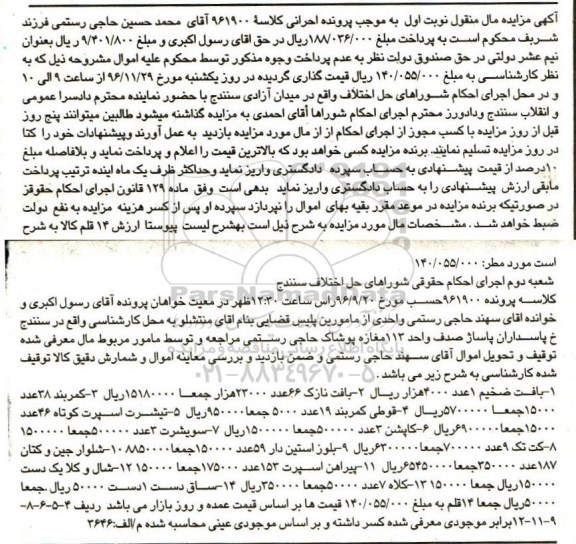 آگهی مزایده مال منقول نوبت اول به موجب پرونده اجرائی کلاسهٔ ۹۶۱۹۰۰ آقای محمد حسین حاجی رستمی فرزند
شریف محکوم است به پرداخت مبلغ ۱۸۸/۰۳۶/۰۰۰ریال در حق اقای رسول اکبری و مبلغ ۹/۴۰۱/۸۰۰ ریال بعنوان
نیم عشر دولتی در حق صندوق دولت نظر به عدم پرداخت وجوه مذکور توسط محکوم علیه اموال مشروحه ذیل که به
نظر کارشناسی به مبلغ ۱۴۰/۰۵۵/۰۰۰ ریال قیمت گذاری گردیده در روز یکشنبه مورخ ۹۶/۱۱/۲۹ از ساعت ۹ الی ۱۰
و در محل اجرای احکام شوراهای حل اختلاف واقع در میدان آزادی سنندج با حضور نماینده محترم دادسرا عمومی
و انقلاب سنندج ودادورز محترم اجرای احکام شوراها آقای احمدی به مزایده گذاشته میشود طالبین میتوانند پنج روز
قبل از روز مزایده با کسب مجوز از اجرای احکام از از مال مورد مزایده بازدید به عمل آورند وپیشنهادات خود را کتبا
در روز مزایده تسلیم نمایند. برنده مزایده کسی خواهد بود که بالاترین قیمت را اعلام و پرداخت نماید و بلافاصله مبلغ
۱۰درصد از قیمت پیشنهادی به حساب سپرده دادگستری واریز نماید وحداکثر ظرف یک ماه اینده ترتیب پرداخت
مابقی ارزش پیشنهادی را به حساب دادگستری واریز نماید بدهی است وفق ماده ۱۲۹ قانون اجرای احکام حقوقز
در صورتیکه برنده مزایده در موعد مقرر بقیه بهای اموال را نپردازد سپرده او پس از کسر هزینه مزایده به نفع دولت
ضبط خواهد شد. مشخصات مال مورد مزایده به شرح ذیل است بهشرح لیست پیوستا ارزش ۱۴ قلم کالا به شرح
است مورد مطر: ۱۴۰/۰۵۵/۰۰۰
شعبه دوم اجرای احکام حقوقی شوراهای حل اختلاف سنندج
کلاسه پرونده ۹۶۱۹۰۰حسب مورخ ۹۶/۹/۲۰راس ساعت ۱۲:۳۰ظهر در معیت خواهان پرونده آقای رسول اکبری و
خوانده اقای سهند حاجی رستمی واحدی از مامورین پلیس قضایی بنام اقای منتشلو به محل کارشناسی واقع در سنندج
خ پاسداران پاساژ صدف واحد ۱۱۳مغازه پوشاک حاجی رستمی مراجعه و توسط مامور مربوط مال معرفی شده
توقیف و تحویل اموال آقای سهند حاجی رستمی و ضمن بازدید و بررسی معاینه اموال و شمارش دقیق کالا توقیف
شده کارشناسی به شرح زیر می باشد.
۱-بافت ضخیم ۱عدد ۴۰۰هزار ریال ۲-بافت نازک ۶۶عدد ۲۳۰۰۰هزار جمعا ۱۵۱۸۰۰۰۰ریال ۳-کمربند ۳۸عدد
۱۵۰۰۰جمعا ۵۷۰۰۰۰ریال ۴-قوطی کمربند ۱۹عدد ۵۰۰۰ جمعا۹۵۰۰۰ریال ۵-تیشرت اسپرت کوتاه ۴۶عدد
۱۵۰۰۰۰جمعا۶۹۰۰۰۰۰ریال ۶-کاپشن ۳عدد ۵۰۰۰۰۰جمعا۱۵۰۰۰۰۰ریال ۷-سویشرت ۳عدد ۵۰۰۰۰۰جمعا۱۵۰۰۰۰۰
۸-کت تک ۹عدد ۷۰۰۰۰۰جمعا۶۳۰۰۰۰۰ریال ۹-بلوز استین دار ۵۹عدد ۱۵۰۰۰۰جمعا۸۸۵۰۰۰۰ ۱۰-شلوار جین و کتان
۱۸۷عدد ۳۵۰۰۰۰جمعا۶۵۴۵۰۰۰۰ریال ۱۱-پیراهن اسپرت ۱۵۳عدد ۱۷۵۰۰۰جمعا ۱۲-شال و کلا یک دست
۱۵۰۰۰۰ریال جمعا ۱۵۰۰۰۰ ۱۳-کلاه ۷عدد ۵۰۰۰۰جمعا ۳۵۰۰۰۰ریال ۱۴-ساق دست ۱دست ۵۰۰۰۰ ریال .جمعا
۵۰۰۰۰ریال جمعا ۱۴قلم به مبلغ ۱۴۰/۰۵۵/۰۰۰ قیمت ها بر اساس قیمت عمده و روز بازار می باشد ردیف ۴-۵-۶-۸-
۹-۱۱-۱۲برابر موجودی معرفی شده کسر داشته و بر اساس موجودی عینی محاسبه شده م/الف:۳۶۴۶
ParsNamadData
۰۲۱-۸۸۳۴۹۶۷۰-۵